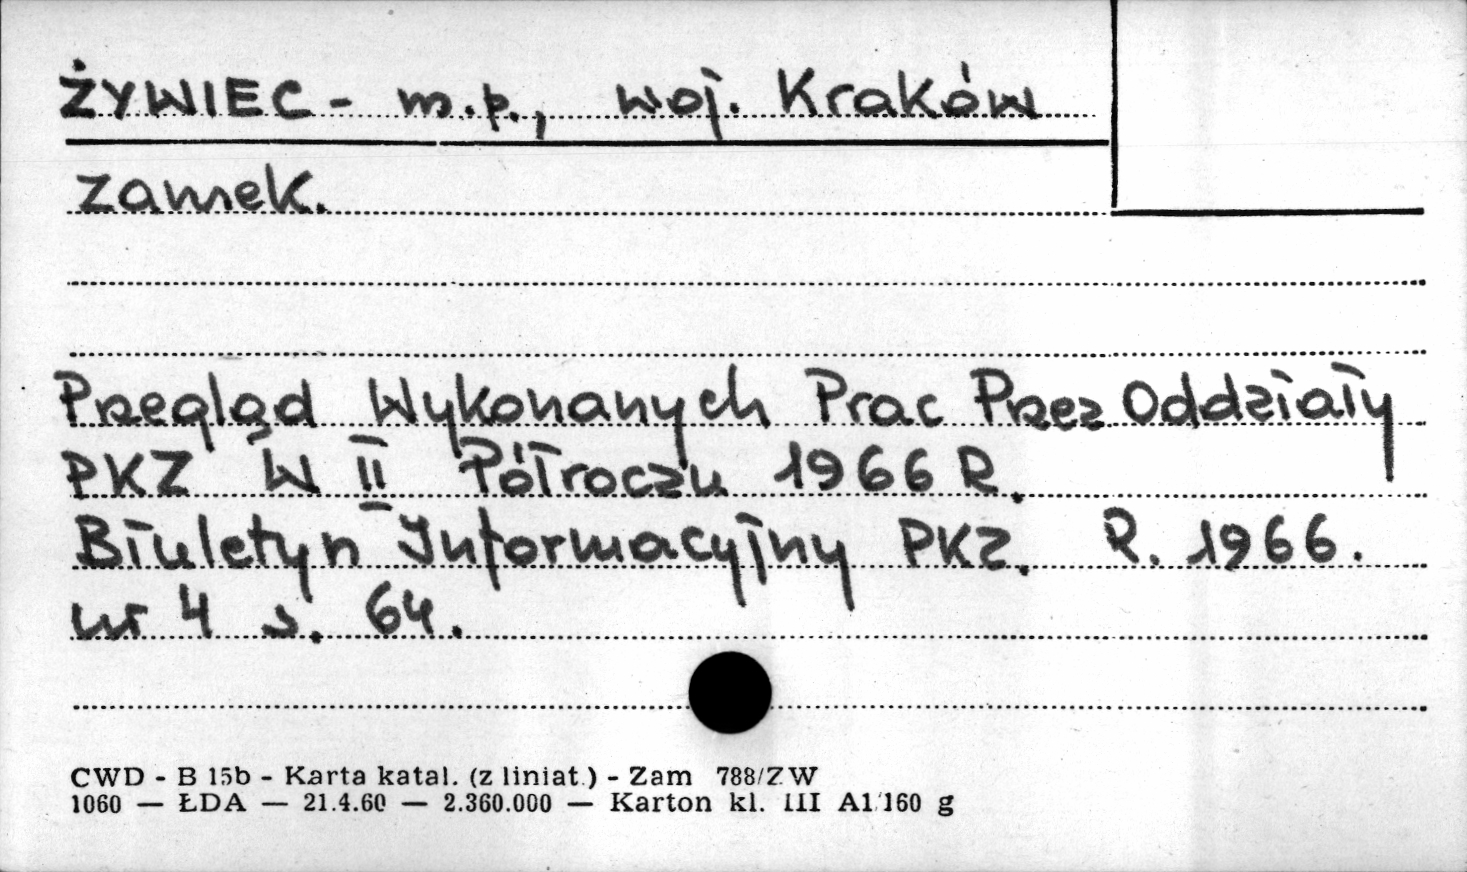 ŻYWIEC - m.p., woj. Kraków
Zamek.
Przegląd Wykonanych Prac Przez Oddziały
PKZ W II Półroczu 1966 R.
Biuletyn Informacyjny PKZ. R. 1966.
nr 4 s. 64.
CWD - B 15b - Karta katal. (z liniat.) - Zam 788/ZW
1060 — ŁDA — 21.4.60 — 2.360.000 — Karton kl. III A1/160 g